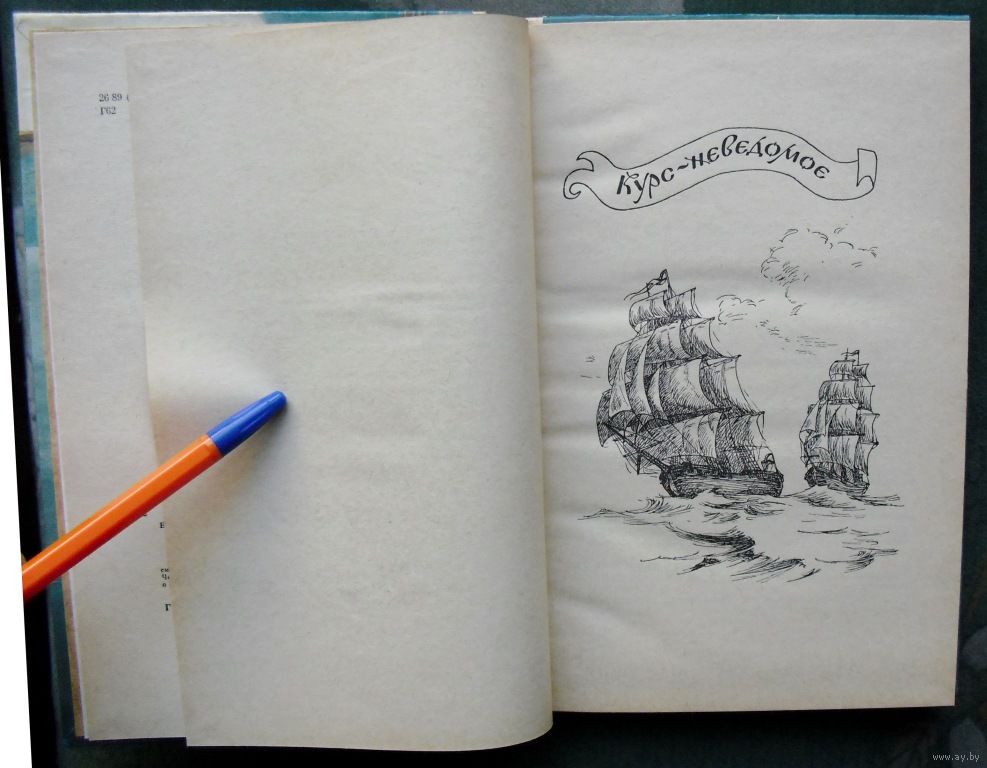 26 89
Г62
Курс~неведомое
www.ay.by